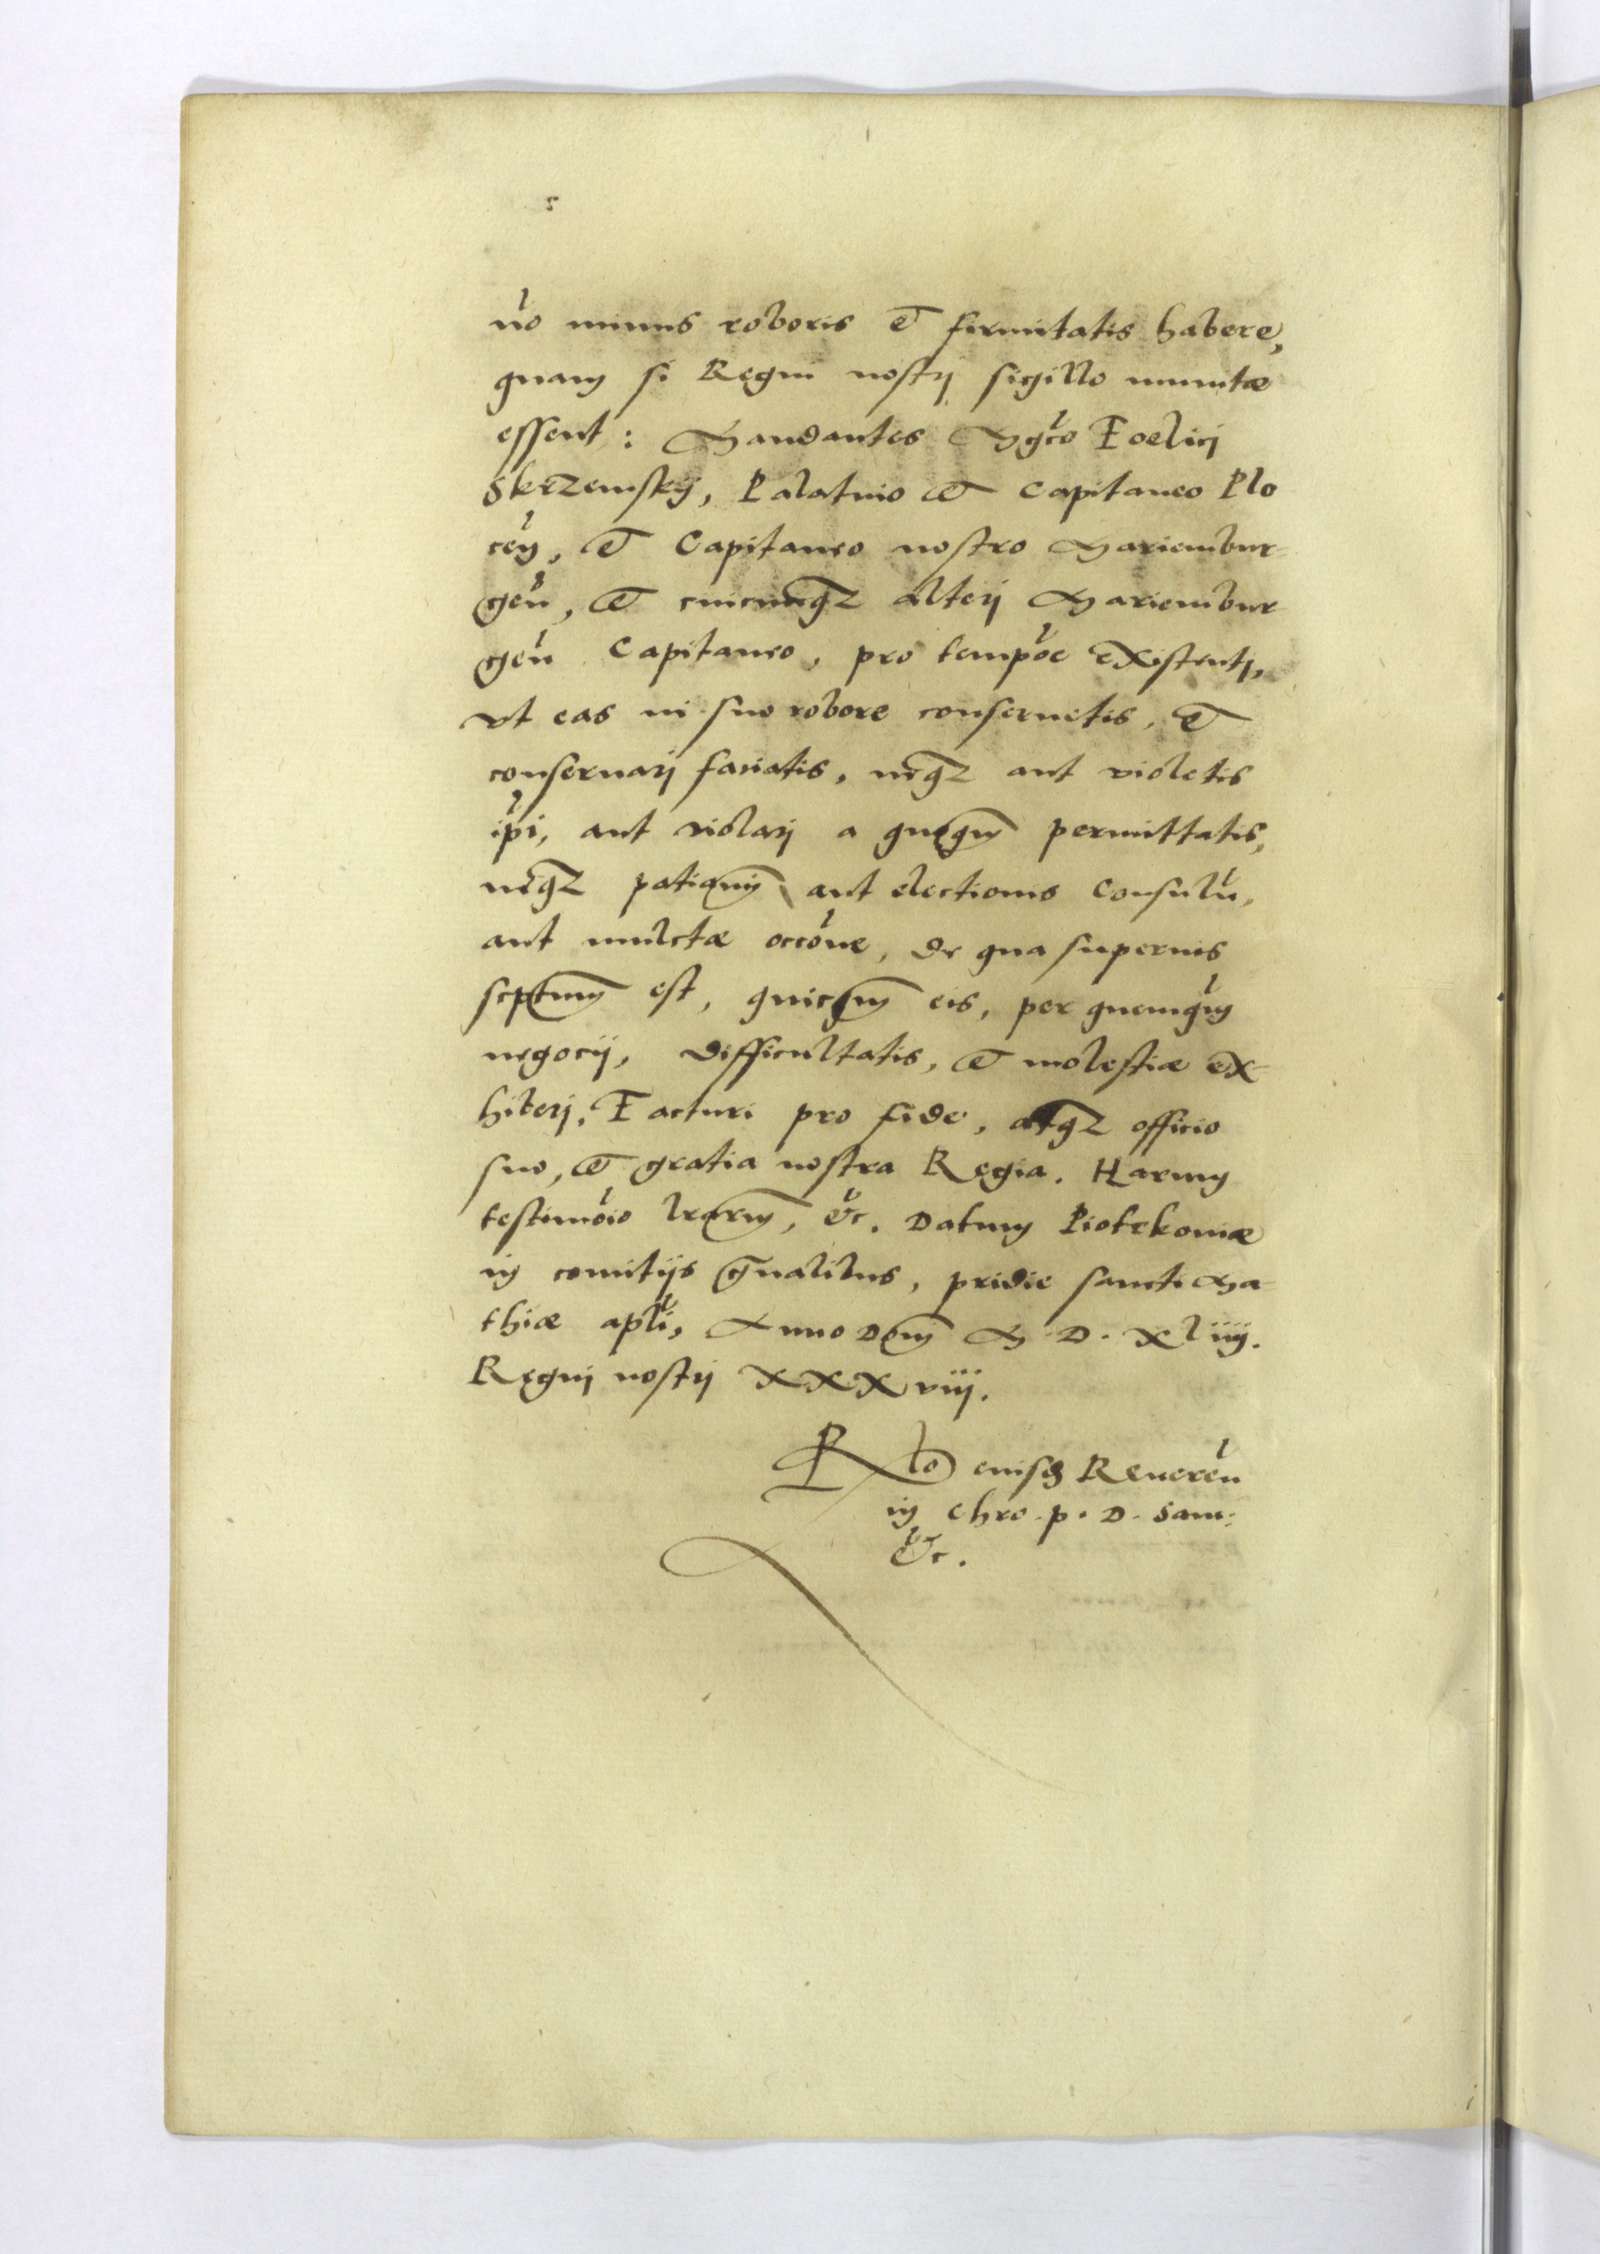 nō minus roboris et firmitatis habere,
quam si Regni nostrj sigillo munitæ
essent: Mandantes Mgco Foelicj
Skrzemskÿ, Palatino et Capitaneo Plo
ceñ, et Capitaneo nostro Mariembur-
geñ, et cuicunqз alterj Mariembur
geñ Capitaneo, pro tempōe existentj,
vt eas in suo robore conseruetis, et
conseruarj faciatis, neqз aut violetis
ipi, aut violarj a quoqm permittatis,
neqз patiamj aut electionis Consulū,
aut mulctæ occōne, de qua superius
scptum est, quicqm eis, per quemqm
negocij, difficultatis, et molestiæ ex-
hiberj, Facturi pro fide, atqз officio
suo, et gratia nostra Regia. Harum
testimōio lrarum, &c. Datum Piotrkoviæ
in comitijs gñalibus, pridie sancti Ma-
thiæ apli, Anno Domj M. D. xliiij.
Regnj nostrj xxxviij.
Rlo eiusd Reueren
in chro. p. D. Sam:
&c.